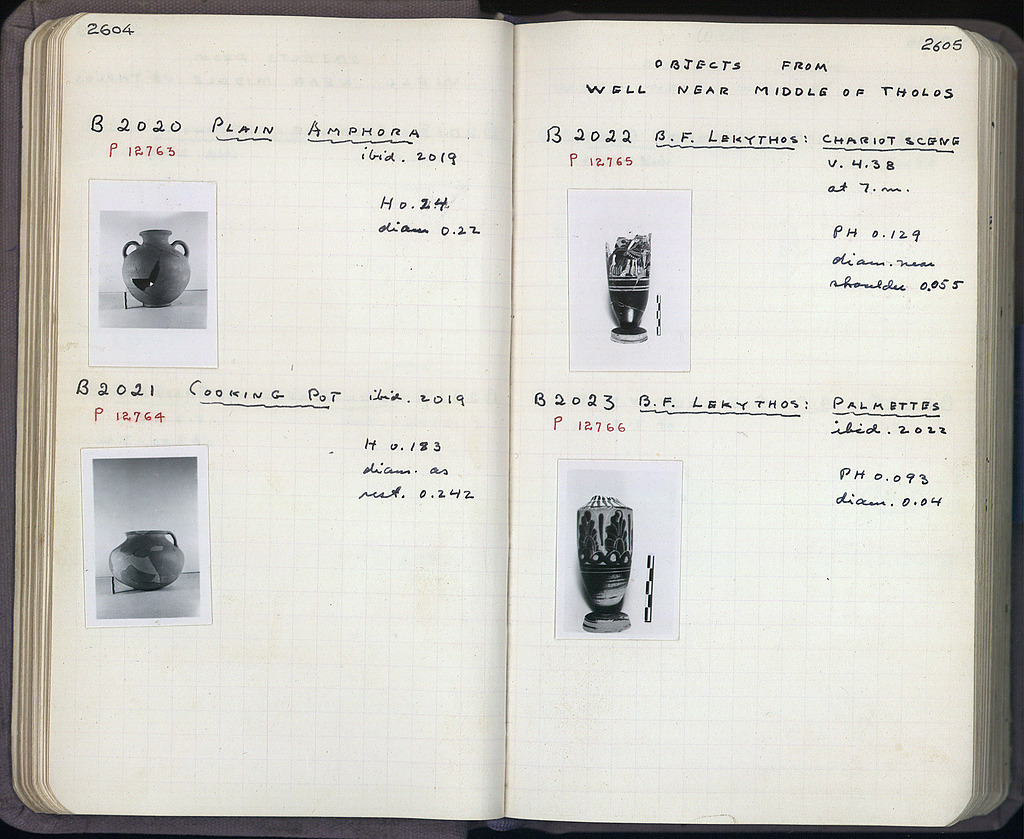 2604
B 2020 PLAIN AMPHORA
P 12763
ibid. 2019
H 0.24
diam 0.22
B 2021 COOKING POT ibid. 2019
P 12764
H 0.183
diam. as
rest. 0.242
2605
OBJECTS FROM
WELL NEAR MIDDLE OF THOLOS
B 2022 B.F. LEKYTHOS: CHARIOT SCENE
P 12765
V. 4.38
at 7. m.
PH 0.129
diam. near
shoulder 0.055
B 2023 B.F. LEKYTHOS: PALMETTES
P 12766
ibid. 2022
PH 0.093
diam. 0.04